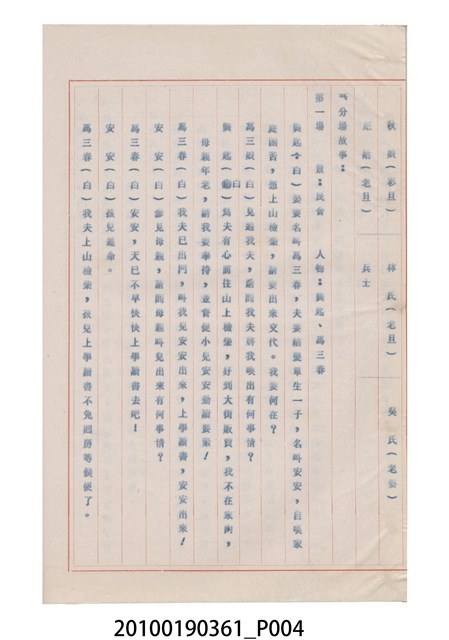 秋娘(彩旦) 林氏(老旦) 吳氏(老婆)
(老旦) 兵士
分場故事:
第一場 景:民舍 人物:張起、馮三春
張起(白)妻名叫馮三春,夫妻結髮單生一子,名叫安安,自嘆家
庭困苦,想上山檢柴,請妻出來交代。我妻何在?
馮三娘(白)見過我夫,請問我夫將我喚出有何事情?
張起(白)為夫有心前往山上檢柴,好到大街販賣,我不在家內,
母親年老,請我妻奉侍,並督促小兒安安勤讀要緊!
馮三春(白)我夫已出門,叫我兒安安出來,上學讀書,安安出來!
安安(白)參見母親,請問母親叫兒出來有何事情?
馮三春(白)安安,天已不早快快上學讀書去吧!
安安(白)孩兒遵命。
馮三春(白)我夫上山檢柴,孩兒上學讀書不免廻房等候便了。
20100190361_P004